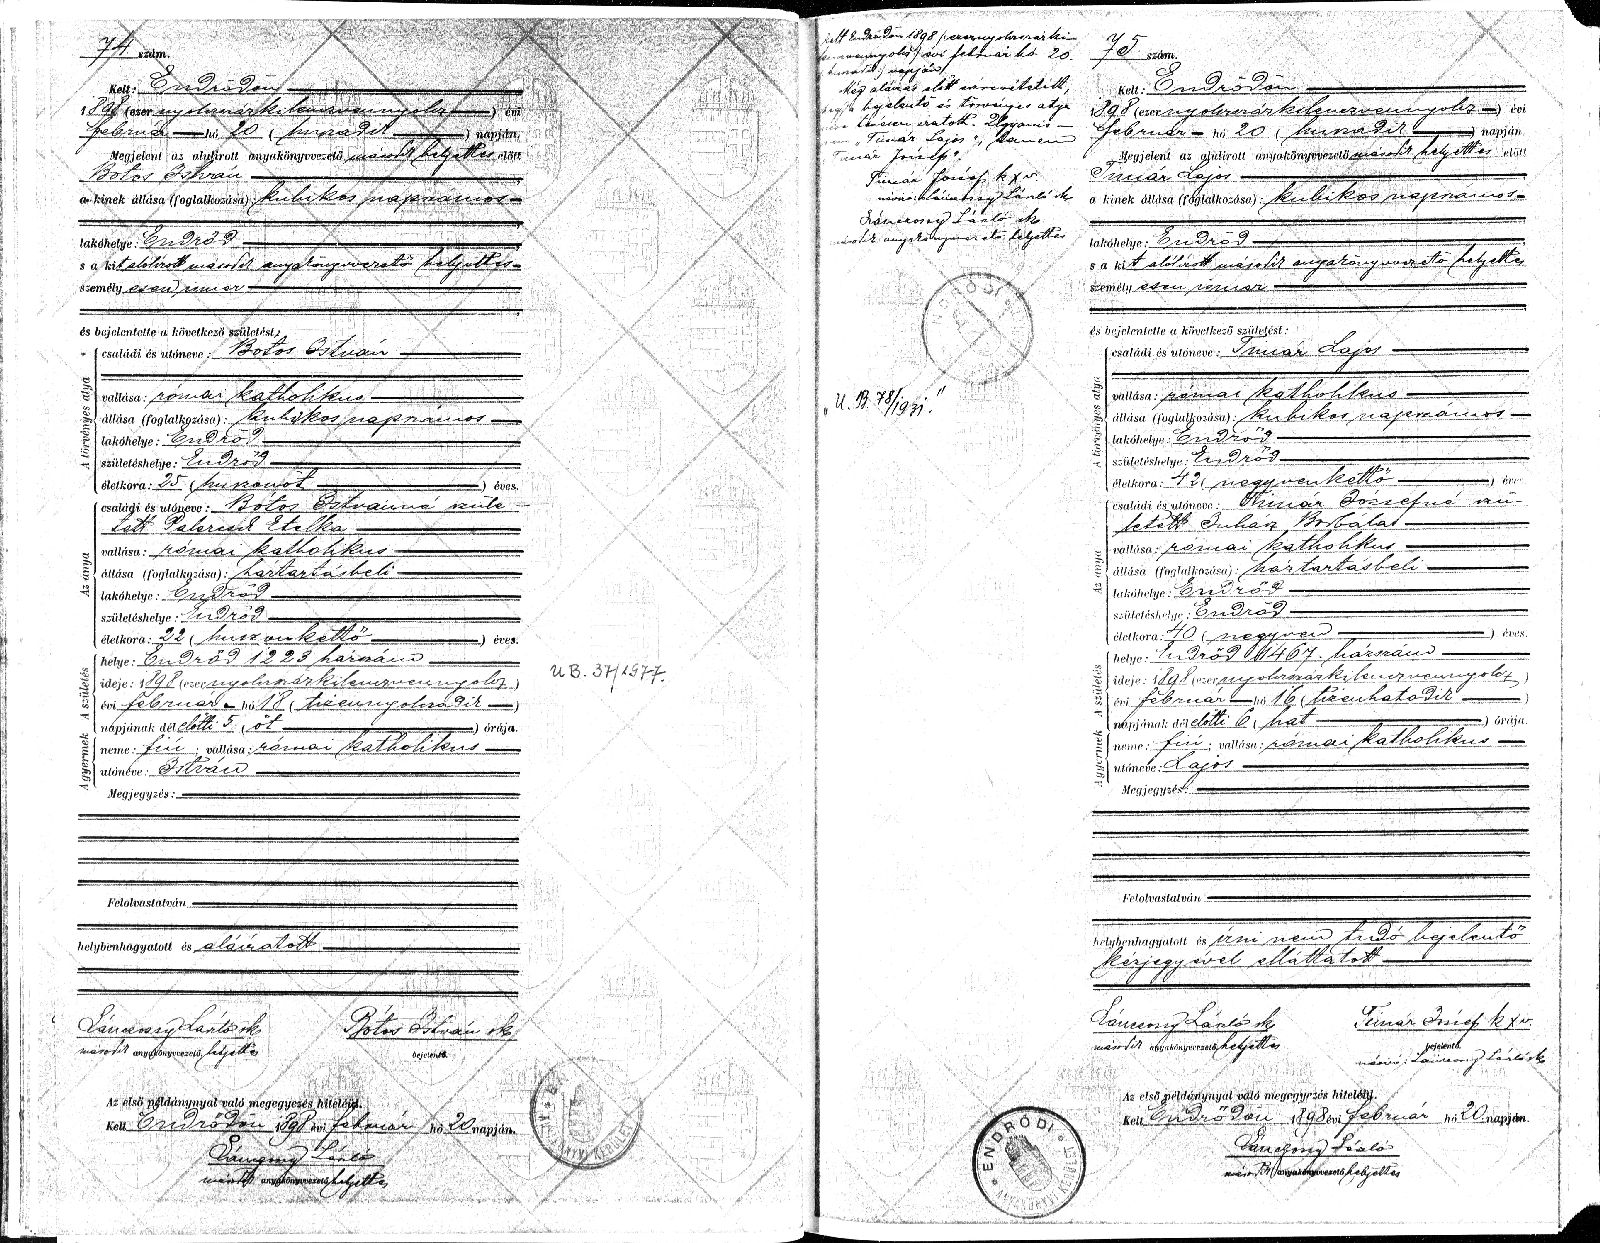 74 szám.
Kelt: Endrődön
1898 (ezernyolcszázkilenczvennyolcz) évi
február hó 20 (huszadik) napján,
Megjelent az alulirott anyakönyvvezető második helyettes előtt
Botos István
a kinek állása (foglalkozása): kubikos napszámos
lakóhelye: Endrőd
s a kit alólirott második anyakönyvvezető helyettes
személyesen ismer
és bejelentette a következő születést:
A törvényes atya
családi és utóneve: Botos István
vallása: római katholikus
állása (foglalkozása): kubikos napszámos
lakóhelye: Endrőd
születéshelye: Endrőd
életkora: 25 (huszonöt) éves.
Az anya
családi és utóneve: Botos Istvánné szüle-
tett Etelka
vallása: római katholikus
állása (foglalkozása): háztartásbeli
lakóhelye: Endrőd
születéshelye: Endrőd
életkora: 22 (huszonkettő) éves.
A gyermek A születés
helye: Endrőd 1223 házszám
ideje: 1898 (ezernyolcszázkilenczvennyolcz)
évi február hó 18 (tizennyolczadik)
napjának délelőtti 5 (öt) órája.
neme: fiú; vallása: római katholikus
utóneve: István
Megjegyzés:
Felolvastatván
helybenhagyatott és aláiratott
Lánczony László sk
Botos István sk
második anyakönyvvezető helyettes
bejelentő.
Az első példánynyal való megegyezés hiteléűl.
Kelt Endrődön 1898 évi február hó 20 napján.
Lánczony László
második anyakönyvvezető helyettes
U B. 37/1977.
kelt Endrődön 1898 (ezernyolcszázki-
lenczvennyolcz) évi február hó 20.
(huszadik) napján
Még aláirás előtt
hogy a bejelentő és törvényes atya
neve tévesen iratott. Ugyanis
nem "Timár Lajos", hanem
"Timár József".
Timár József k x v.
Lánczony László sk
Lánczony László sk
második anyakönyvvezető helyettes
"U. B. 78/1931."
75 szám.
Kelt: Endrődön
1898 (ezernyolcszázkilenczvennyolcz) évi
február hó 20 (huszadik) napján
Megjelent az alulirott anyakönyvvezető második helyettes előtt
Timár Lajos
a kinek állása (foglalkozása): kubikos napszámos
lakóhelye: Endrőd
s a kit alólirott második anyakönyvvezető helyettes
személyesen ismer
és bejelentette a következő születést:
A törvényes atya
családi és utóneve: Timár Lajos
vallása: római katholikus
állása (foglalkozása): kubikos napszámos
lakóhelye: Endrőd
születéshelye: Endrőd
életkora: 42 (negyvenkettő) éves
Az anya
családi és utóneve: Timár Józsefné szü-
letett Juhász Borbála
vallása: római katholikus
állása (foglalkozása): háztartásbeli
lakóhelye: Endrőd
születéshelye: Endrőd
életkora: 40 (negyven) éves.
A gyermek A születés
helye: Endrőd 1467. házszám
ideje: 1898 (ezernyolcszázkilenczvennyolcz)
évi február hó 16 (tizenhatodik)
napjának délelőtti 6 (hat) órája.
neme: fiú; vallása: római katholikus
utóneve: Lajos
Megjegyzés:
Felolvastatván
helybenhagyatott és irni nem tudó bejelentő
kézjegyével elláttatott
Lánczony László sk
Timár József k x v.
második anyakönyvvezető helyettes
bejelentő.
Lánczony László sk
Az első példánynyal való megegyezés hiteléűl.
Kelt Endrődön 1898 évi február hó 20 napján.
Lánczony László
második anyakönyvvezető helyettes
ENDRŐDI